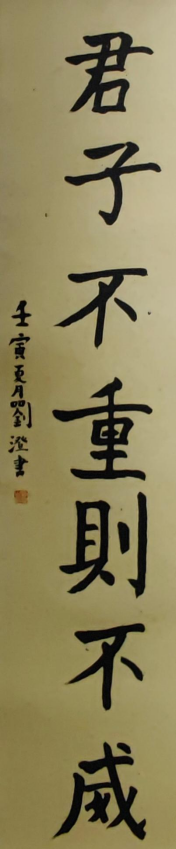 君子不重則不威
壬寅夏月劉澄書